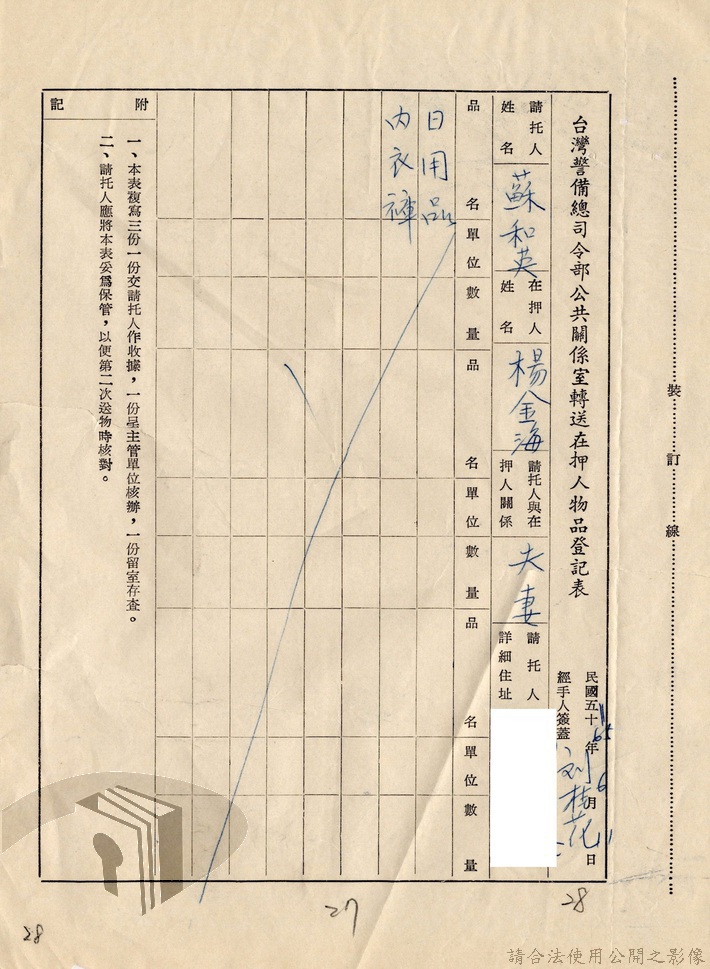 裝訂線
台灣警備總司令部公共關係室轉送在押人物品登記表
民國五十年65 6月11日
經手人簽蓋 劉桂花
請托人姓名 蘇和英 在押人姓名 楊金海 請托人與在押人關係 夫妻 請托人詳細住址
品名 單位 數量 品名 單位 數量 品名 單位 數量
日用品
內衣褲
附記
一、本表複寫三份一份交請托人作收據，一份呈主管單位核辦，一份留室存查。
二、請托人應將本表妥爲保管，以便第二次送物時核對。
28
27
28
請合法使用公開之影像